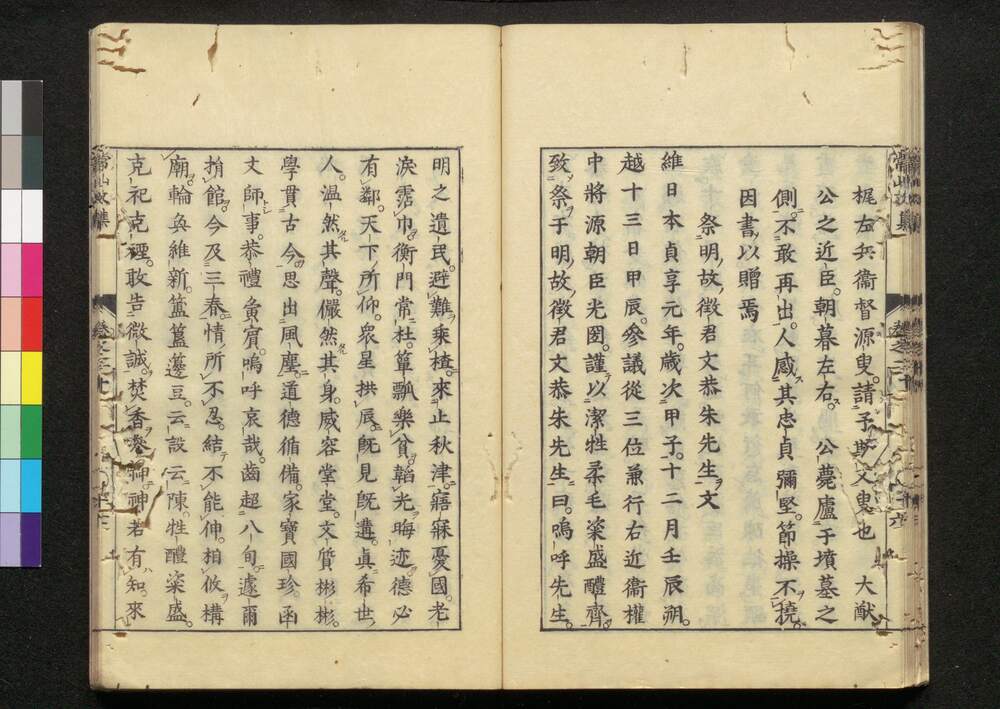 梶左兵衞督源叟。請予斯文。叟也 大猷
公之近臣。朝暮左右。 公薨廬于墳墓之
側。不敢再出。人感其忠貞彌堅。節操不撓。
因書以贈焉
祭明故徵君文恭朱先生文
維日本貞享元年。歲次甲子。十二月壬辰朔。
越十三日甲辰。參議從三位兼行右近衞權
中將源朝臣光圀。謹以潔牲柔毛粢盛醴齊。
致祭于明故徵君文恭朱先生曰。嗚呼先生。
明之遺民。避難乘槎。來止秋津。寤寐憂國。老
淚霑巾。衡門常杜。簞瓢樂貧。韜光晦迹。德必
有鄰。天下所仰。衆星拱辰。旣見旣遘。眞希世
人。溫然其聲。儼然其身。威容堂堂。文質彬彬。
學貫古今。思出風塵。道德循備。家寶國珍。函
文師事。恭禮夤賓。嗚呼哀哉。齒超八旬。遽爾
捐館。今及三春。情所不忍。結不能伸。相攸構
廟。輪奐維新。簠簋籩豆。云設云陳。牲醴粢盛。
克祀克禋。敢告微誠。焚香 神若有知。來
常山文集
卷之二十